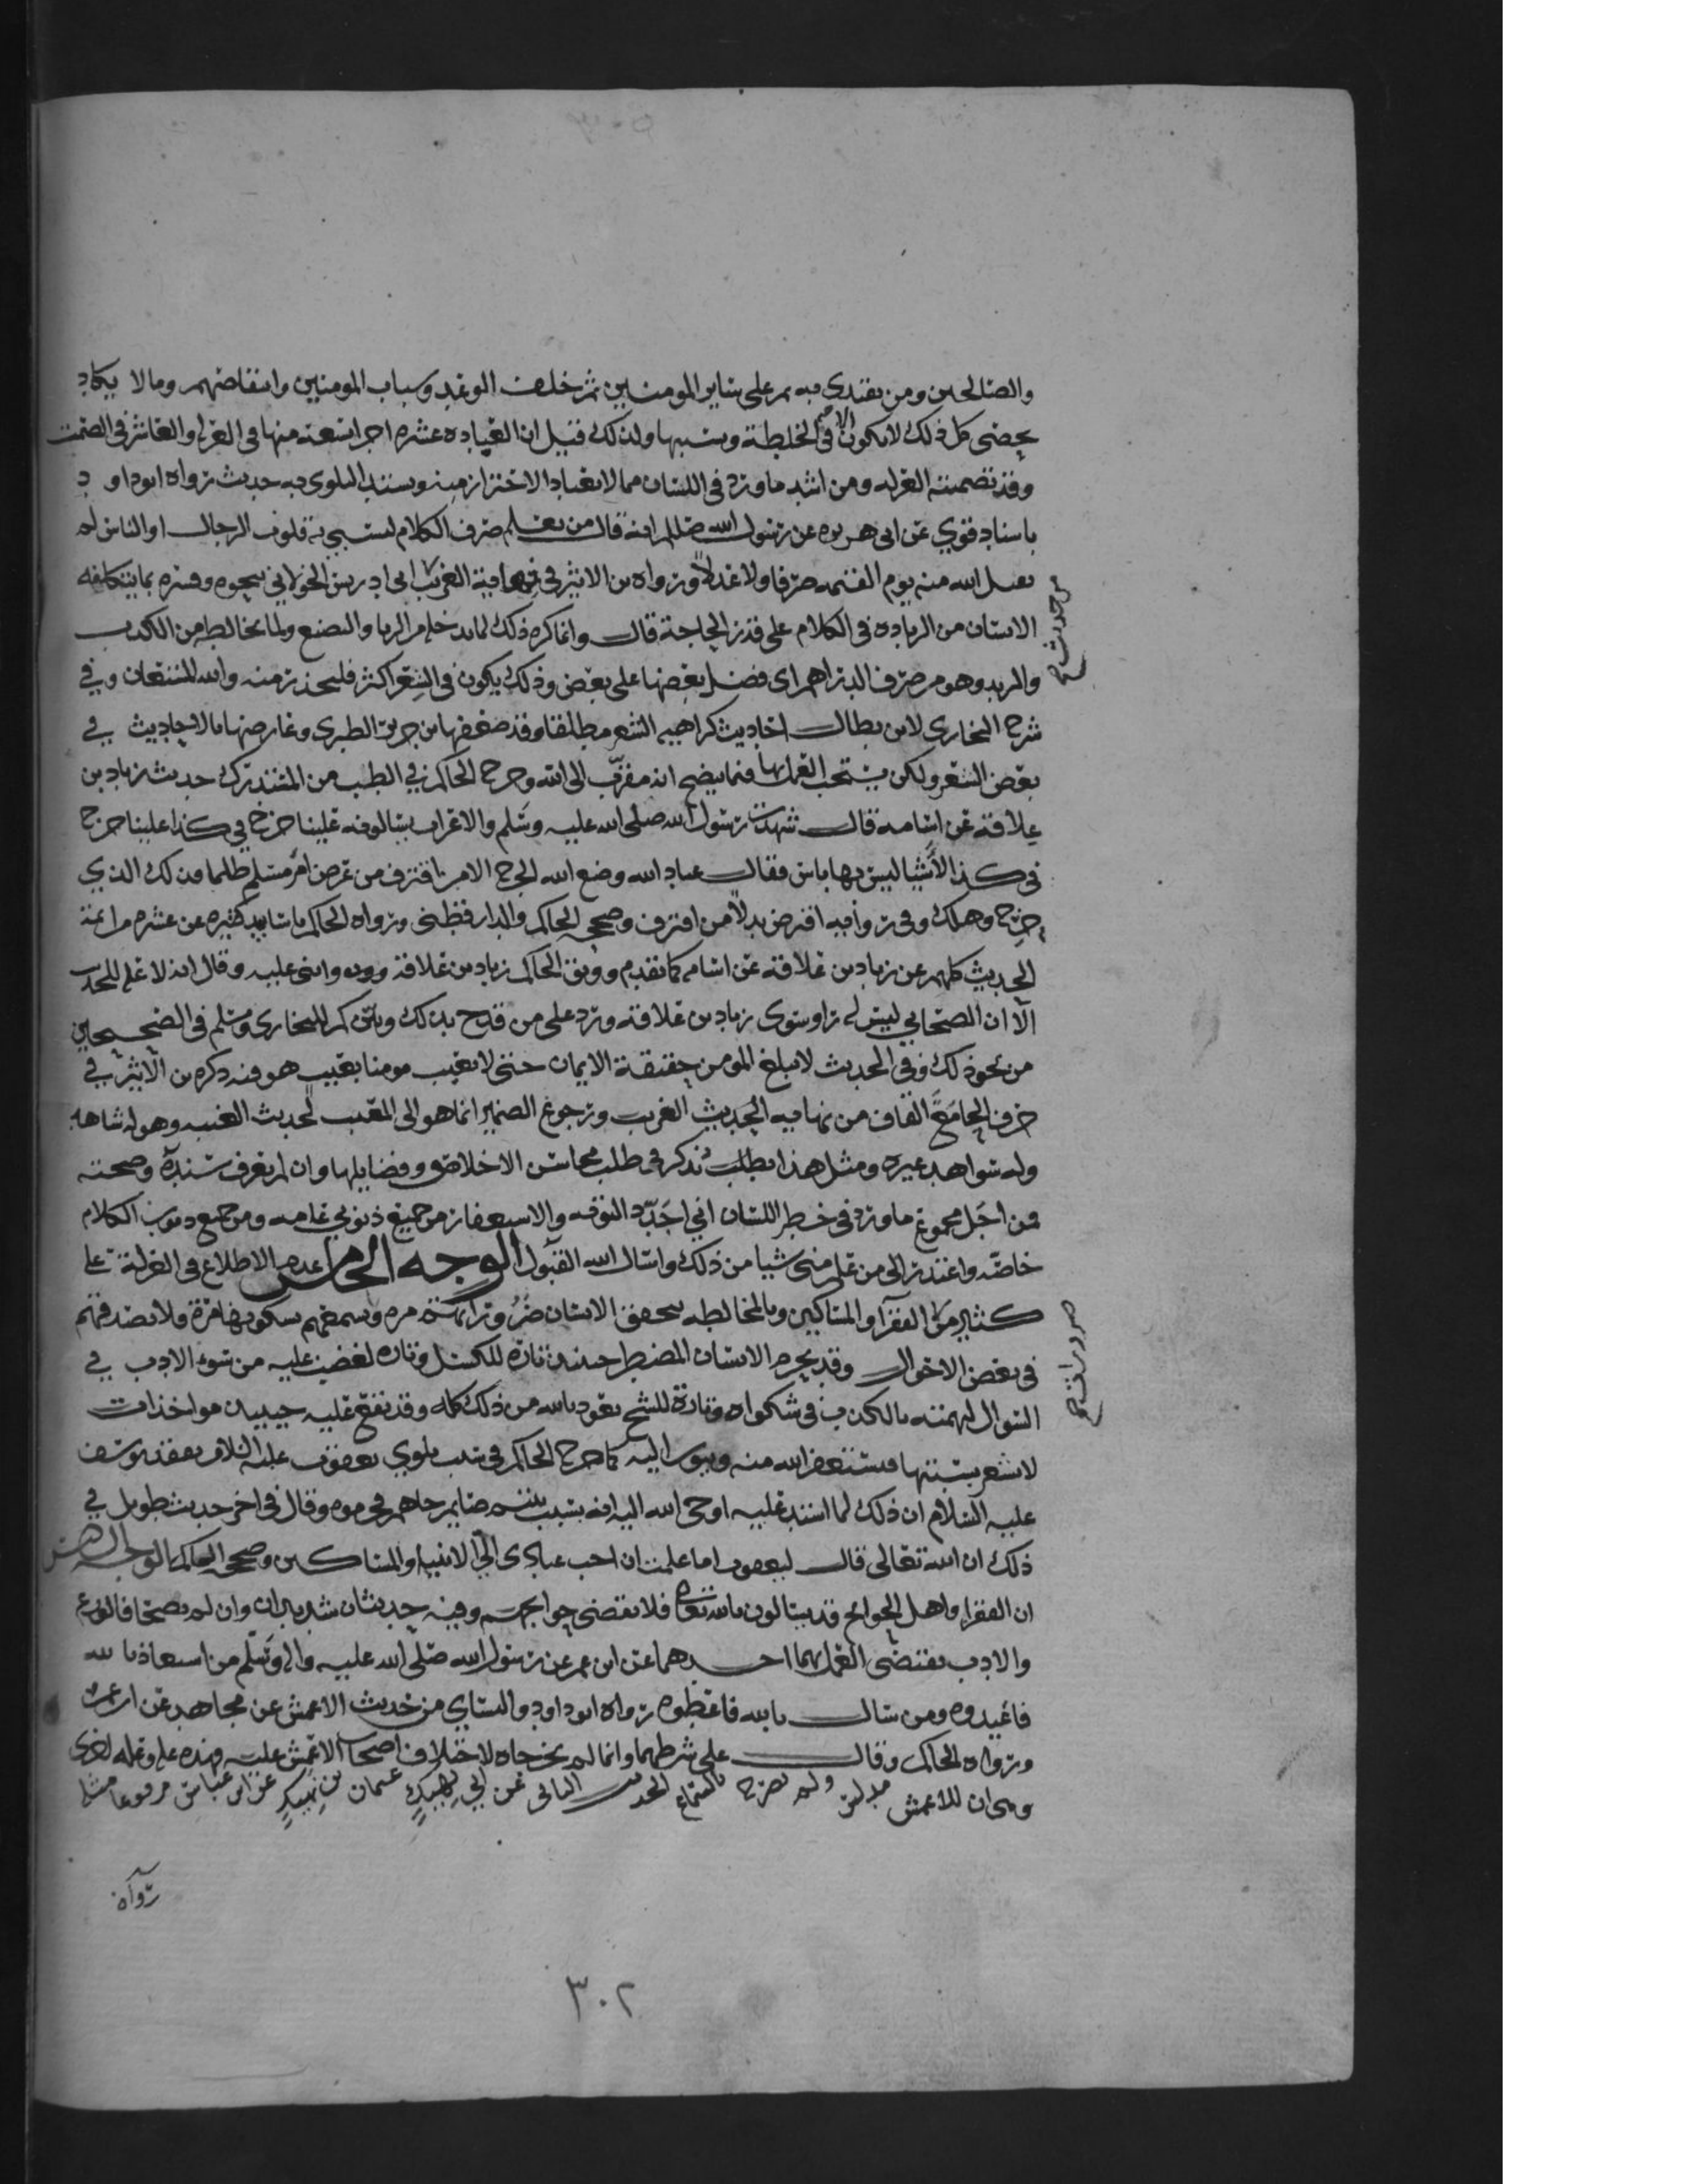 والصالحين ومن يقتدى به ثم على ساير المومنين ثم خلف الوعد وسباب المومنين وانتقاصهم ومالا يكاد
يحصى كل ذلك لا يكون الا في الخلطة وسببها ولذلك قيل ان العبادة عشرة اجزا تسعة منها في العزلة والعاشر في الصمت
وقد تضمنته العزلة ومن اشد ما ورد في اللسان مما لا يعتاد الاحتراز منه ويستد البلوى به حديث رواه ابو داود
باسناد قوي عن ابى هريره عن رسول الله صللم انه قال من تعلم صرف الكلام ليستبي به قلوب الرجال او الناس لم
يقبل الله منه يوم القيمه صرفا ولا عدلا ورواه بن الاثير في نهاية الغريب ابى ادريس الخولاني بنحوه وفسره بما يتكلفه
من حديث
الانسان من الزياده في الكلام على قدر الحاجة قال وانما كره ذلك لما يدخله من الريا والتصنع ولما يخالطه من الكذب
والتزيد وهو من صرف الدراهم اى فضل بعضها على بعض وذلك يكون في الشعر اكثر فليحذر منه والله المستعان وفي
شرح البخارى لابن بطال احاديث كراهيه الشعر مطلقا وقد ضعفها بن جرير الطبرى وعارضها بالاحاديث في
بعض الشعر ولكن يستحب العمل بها فيما يضح انه مقرب الى الله وخرج الحاكم في الطب من المستدرك حديث زياد بن
علاقة عن اسامه قال شهدت رسول الله صلى الله عليه وسلم والاعراب يسالونه علينا حرج في كذا علينا حرج
في كذا الاشيا ليس بها باس فقال عباد الله وضع الله الحرج الا من اقترف من عرض امر مسلم ظلما فذلك الذي
حرج وهلك وفي رواية اقترض بدلا من اقترف وصححه الحاكم والدارقطنى ورواه الحاكم باسانيد كثيره عن عشره من ائمة
الحديث كلهم عن زياد بن علاقة عن اسامه كما تقدم ووثق الحاكم زياد بن علاقة واثنى عليه وقال انه لا علة للحديث
الا ان الصحابي ليس له راو سوى زياد بن علاقة ورد على من قدح بذلك للبخارى ومسلم في الصحيحين
من نحو ذلك وفي الحديث لا يبلغ المومن حقيقة الايمان حتى لا يعيب مومنا بعيب هو فيه ذكره بن الاثير في
حرف الجامع القاف من نهاية الحديث الغريب ورجوع الضمير انما هو الى المعيب لحديث الغيبة وهو له شاهد
وله شواهد غيره ومثل هذا يطلب يذكر في طلب محاسن الاخلاق وفضايلها وان لم يعرف سنده وصحته
فمن اجل مجموع ما ورد في خطر اللسان اني اجدد التوبة والاستغفار من جميع ذنوبي عامه ومن جميع ذنوب الكلام
خاصة واعتذر الى من علم منى شيا من ذلك واسال الله القبول الوجه الخامس عدم الاطلاع في العزلة على
كثير من الفقرآ والمساكين وبالمخالطه يتحقق الانسان ضرورتهم مرة ويتهمهم بكونها مرة فلا يصدقهم
في بعض الاحوال وقد يحرم الانسان المضطر حينئذ تارة للكسل وتاره لغضب عليه من سوء الادب في
السوال او لتهمته بالكذب في شكواه وتارة للشح نعوذ بالله من ذلك كله وقد تقع عليه حينئذ مواخذات
لا يشعر بسببها فيستغفر الله منه ويتوب اليه كما خرج الحاكم في سبب بلوى يعقوب عليه السلام بفقد يوسف
عليه السلام ان ذلك لما اشتد عليه اوحى الله اليه انه بسبب صايم وقال في اخر حديث طويل في
ذلك ان الله تعالى قال ليعقوب اما علمت ان احب عبادى الي الانبيا والمساكين وصححه الحاكم الوجه السادس
ان الفقرا واهل الحوائج قد يسالون بالله تعالى فلا تقضى حوايجهم وفيه حديثان شديدان وان لم يصحا فالورع
والادب يقتضى العمل بهما احدهما عن ابن عمر عن رسول الله صلى الله عليه واله وسلم من استعاذ بالله
فاعيذوه ومن سال بالله فاعطوه رواه ابو داود والنساي من حديث الاعمش عن مجاهد عن ابن عمر
ورواه الحاكم وقال على شرطهما وانما لم يخرجاه لاختلاف اصحاب الاعمش عليه فهذه علة وعلة اخرى
وهى ان الاعمش مدلس ولم يصرح بالسماع الحديث الثانى عن ابي نهيك عثمان بن نهيك عن ابن عباس مرفوعا مثله
رواه
٣٠٢